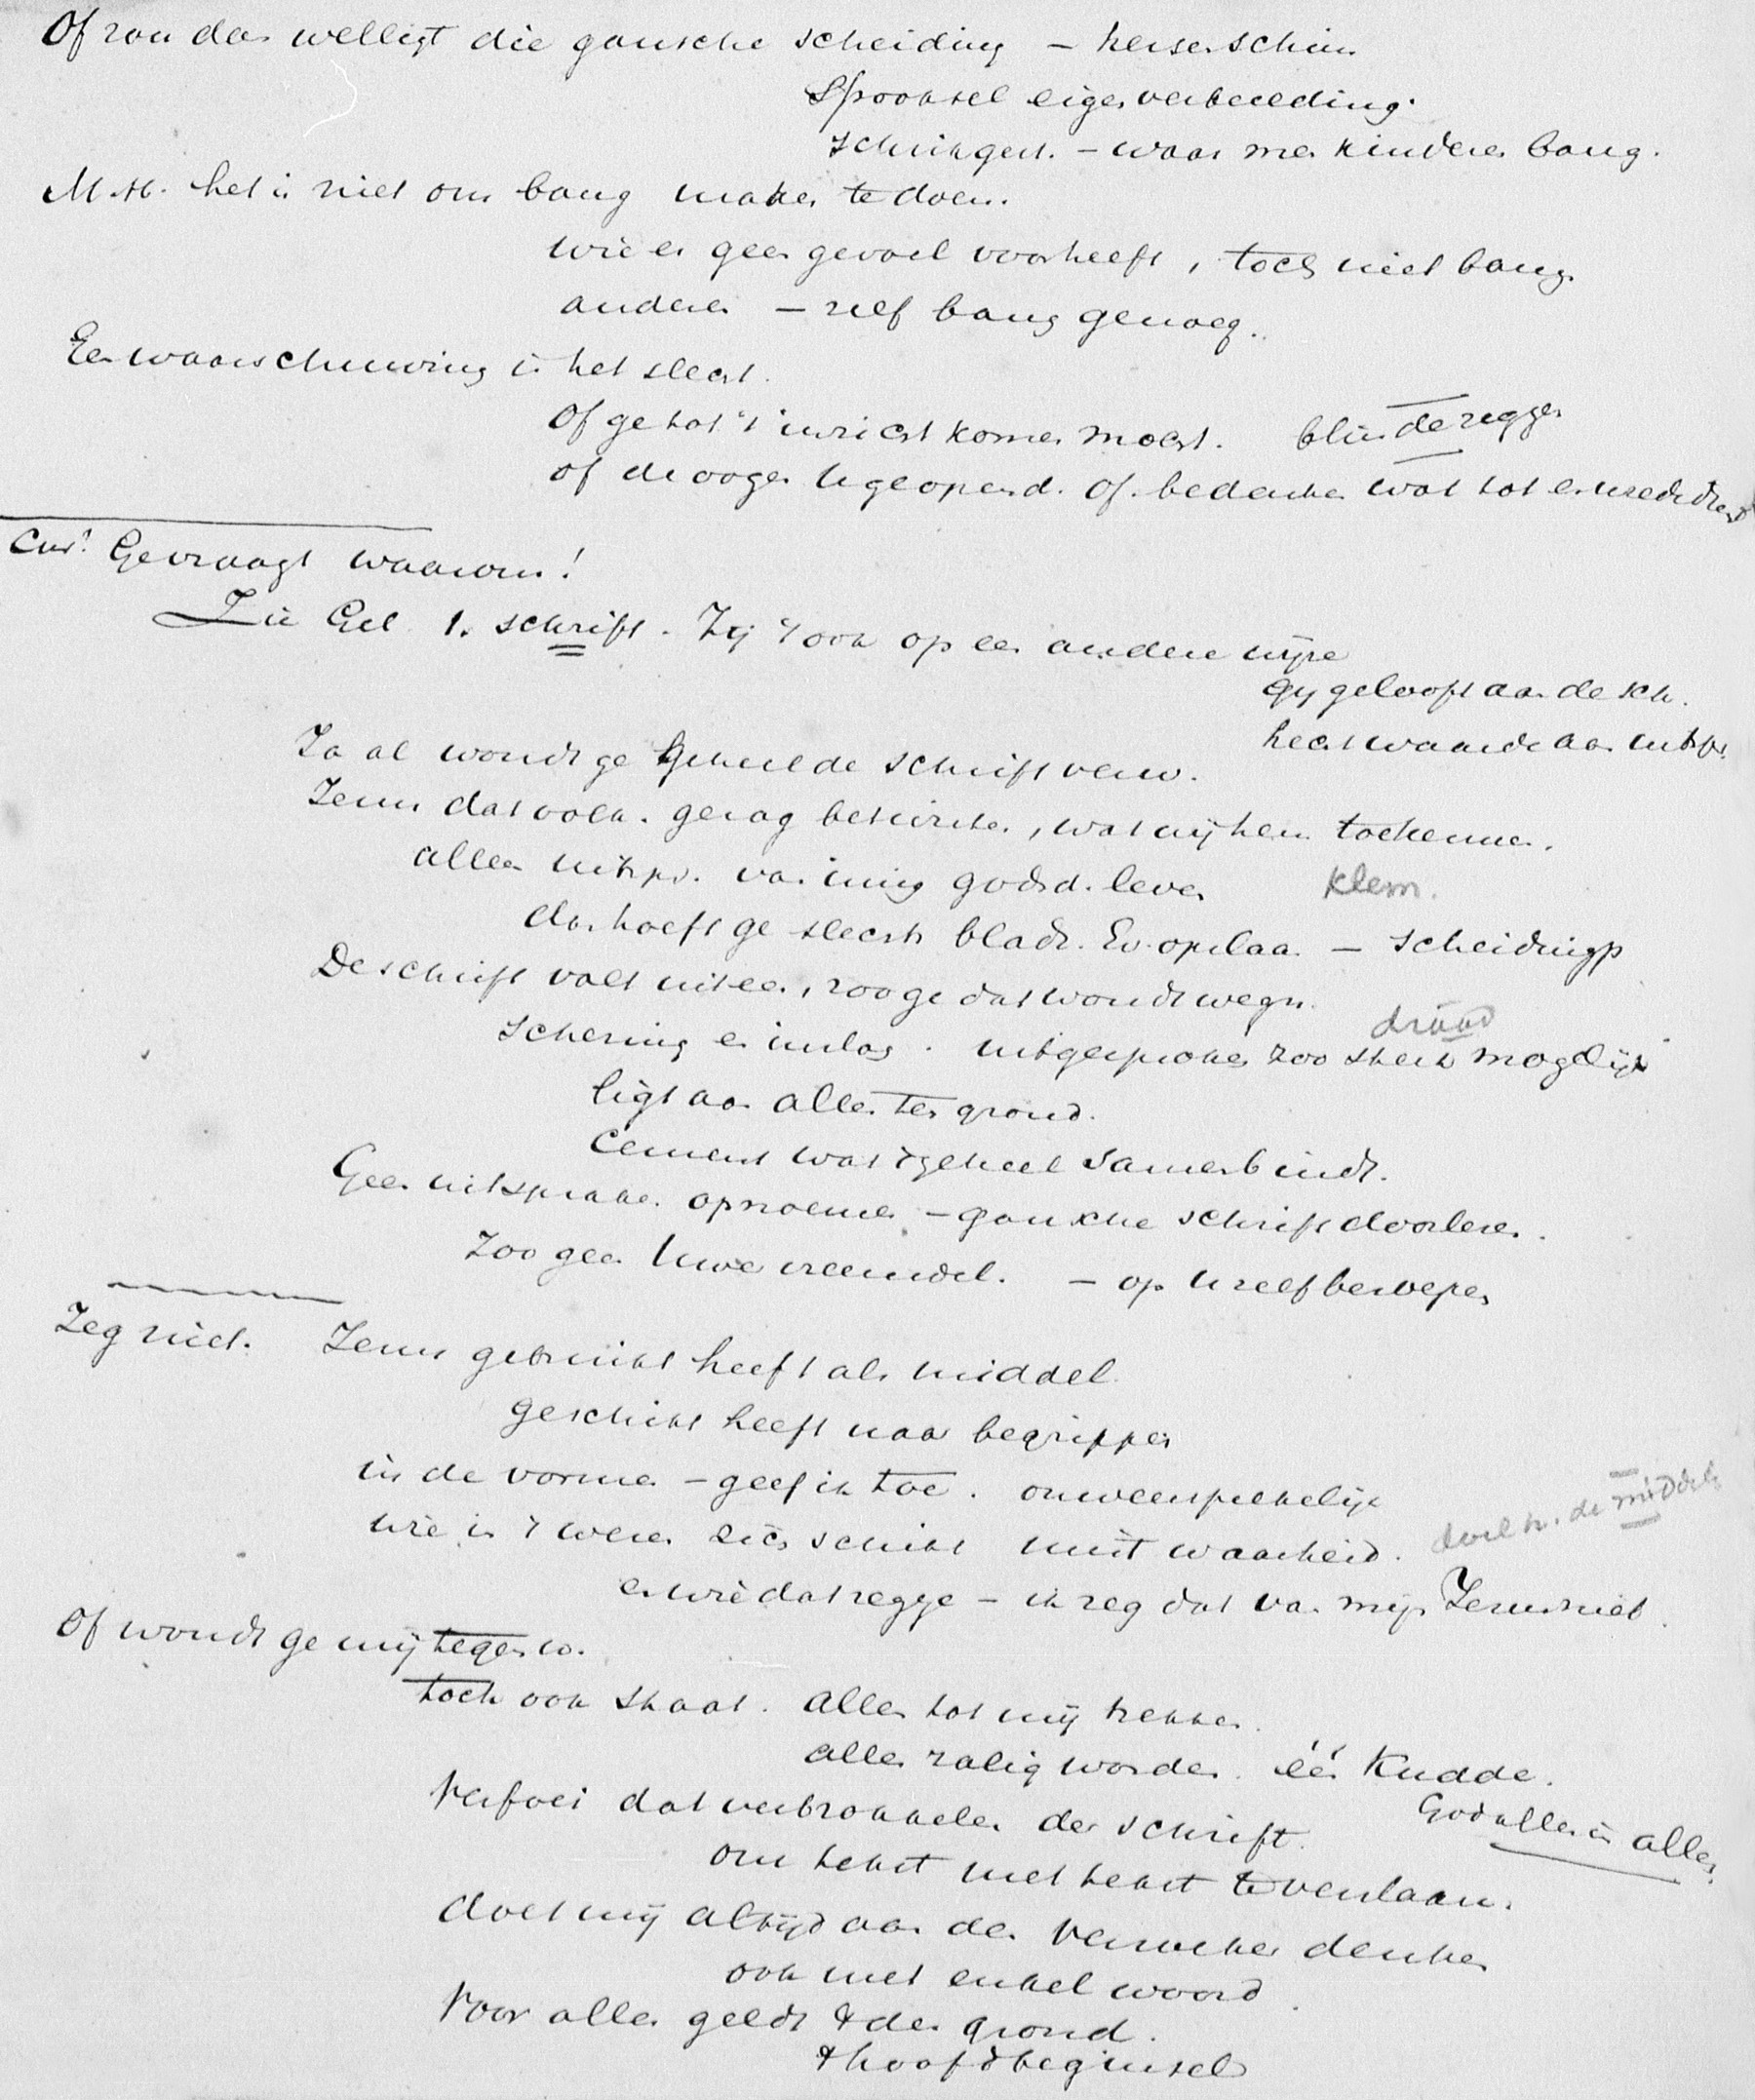 Of zou dan welligt die gansche scheiding – hersenschim
Spooksel eigen verbeelding.
schrikgest. – waar men kinderen bang.
M.H. het is niet om bang maken te doen.
wie er geen gevoel voor heeft, toch niet bang
anderen – zelf bang genoeg.
Een waarschuwing is het slecht.
Of ge tot 't inzicht komen mocht. blinde zeggen
of de oogen U geopend. Of bedenken wat tot en vrede dient
Gevraagt waarom!
Zie Gel. 1. schrift. Zij 't ook op een andere wijze
gij gelooft aan de sch.
hecht waarde aan uitspr.
Ja al wondt ge geheel de schrift verw.
Jezus dat ook. gezag betwisten, wat wij hem toekennen.
alleen uitspr. van innig godsd. leven klem.
dan hoeft ge slechts bladz. Ev. opslaan – scheidingsp
De schrift valt uiteen, zoo ge dat wondt wegn.
draad
Schering en inslag. uitgesproken zoo sterk mogelijk
ligt aan alles ten grond.
Cement wat 't geheel samenbindt.
Geen uitspraken opnoemen – gansche schrift doorlezen.
Zoo geen Uwe vreemdel. – op U zelf beroepen
Zeg niet. Jezus gebruikt heeft als middel.
geschikt heeft naar begrippen
in de vormen – geef ik toe. onweersprekelijk
wie in 't wezen zich schikt mist waarheid. doel h. de middels
en wie dat zegge – ik zeg dat van mijn Jezus niet.
Of wondt ge mij tegenw.
toch ook staat. allen tot mij trekken.
allen zalig worden. één Kudde.
God alles in allen
Verfoei dat verbrokkelen der schrift.
om tekst met tekst te verslaan.
doet mij altijd aan den Verzoeker denken
ook met enkel woord.
Voor alles geldt 't den grond.
't hoofdbeginsel